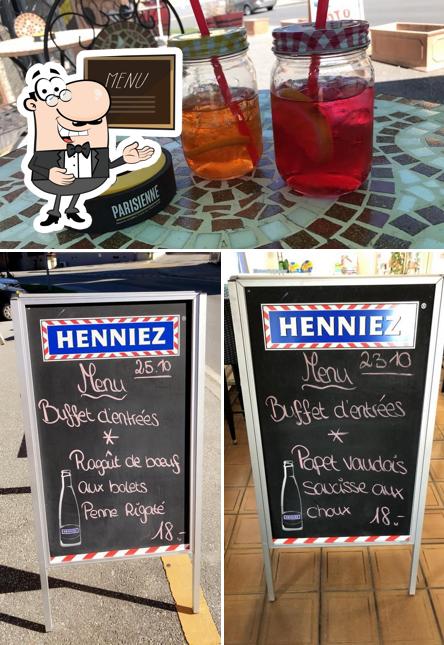 MENU
PARISIENNE
HENNIEZ
25.10
Menu
Buffet d'entrées
*
Ragoût de bœuf
aux bolets
Penne Rigaté
18.-
HENNIEZ
HENNIEZ
23.10
Menu
Buffet d'entrées
*
Papet vaudois
saucisse aux
choux 18.-
HENNIEZ